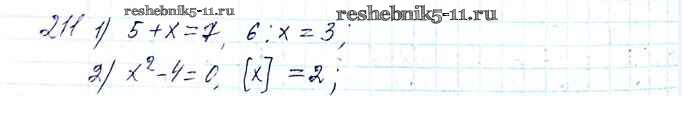 reshebnik5-11.ru
211 1) 5+x=7, 6:x=3;
2) x²-4=0, [x]=2;
reshebnik5-11.ru